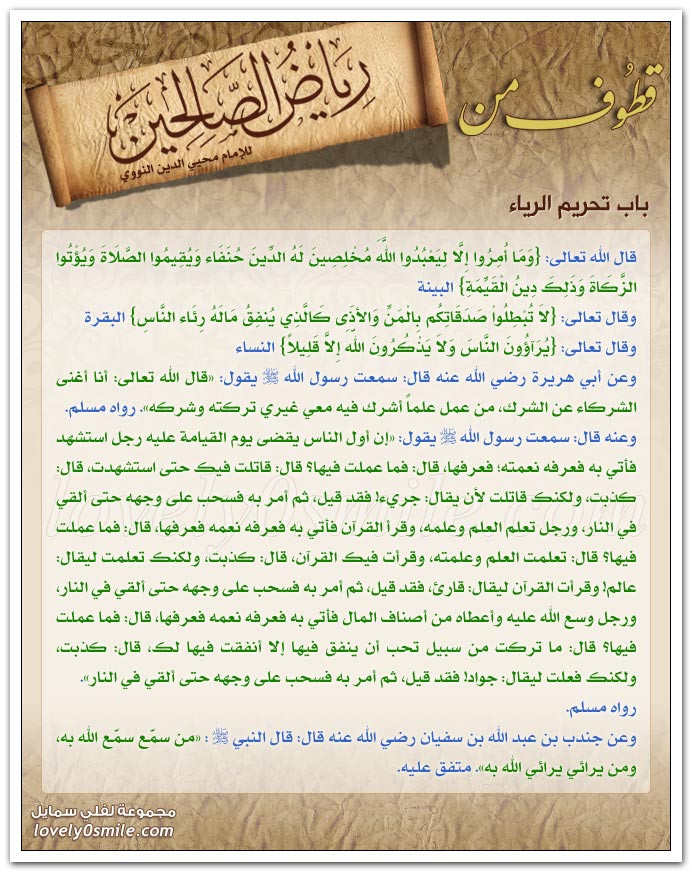 قطوف من
رياض الصالحين
للإمام محيي الدين النووي
باب تحريم الرياء
قال الله تعالى: {وَمَا أُمِرُوا إِلَّا لِيَعْبُدُوا اللَّهَ مُخْلِصِينَ لَهُ الدِّينَ حُنَفَاء وَيُقِيمُوا الصَّلَاةَ وَيُؤْتُوا
الزَّكَاةَ وَذَلِكَ دِينُ الْقَيِّمَةِ} البينة
وقال تعالى: {لاَ تُبْطِلُواْ صَدَقَاتِكُم بِالْمَنِّ وَالأذَى كَالَّذِي يُنفِقُ مَالَهُ رِئَاء النَّاسِ} البقرة
وقال تعالى: {يُرَآؤُونَ النَّاسَ وَلاَ يَذْكُرُونَ الله إِلاَّ قَلِيلاً} النساء
وعن أبي هريرة رضي الله عنه قال: سمعت رسول الله ﷺ يقول: «قال الله تعالى: أنا أغنى
الشركاء عن الشرك، من عمل علماً أشرك فيه معي غيري تركته وشركه». رواه مسلم.
وعنه قال: سمعت رسول الله ﷺ يقول: «إن أول الناس يقضى يوم القيامة عليه رجل استشهد
فأتي به فعرفه نعمته؛ فعرفها، قال: فما عملت فيها؟ قال: قاتلت فيك حتى استشهدت، قال:
كذبت، ولكنك قاتلت لأن يقال: جريء! فقد قيل، ثم أمر به فسحب على وجهه حتى ألقي
في النار، ورجل تعلم العلم وعلمه، وقرأ القرآن فأتي به فعرفه نعمه فعرفها، قال: فما عملت
فيها؟ قال: تعلمت العلم وعلمته، وقرأت فيك القرآن، قال: كذبت، ولكنك تعلمت ليقال:
عالم! وقرأت القرآن ليقال: قارئ، فقد قيل، ثم أمر به فسحب على وجهه حتى ألقي في النار،
ورجل وسع الله عليه وأعطاه من أصناف المال فأتي به فعرفه نعمه فعرفها، قال: فما عملت
فيها؟ قال: ما تركت من سبيل تحب أن ينفق فيها إلا أنفقت فيها لك، قال: كذبت،
ولكنك فعلت ليقال: جواد! فقد قيل، ثم أمر به فسحب على وجهه حتى ألقي في النار».
رواه مسلم.
وعن جندب بن عبد الله بن سفيان رضي الله عنه قال: قال النبي ﷺ : «من سمّع سمّع الله به،
ومن يرائي يرائي الله به». متفق عليه.
lovely0smile.com
مجموعة لفلي سمايل
lovely0smile.com